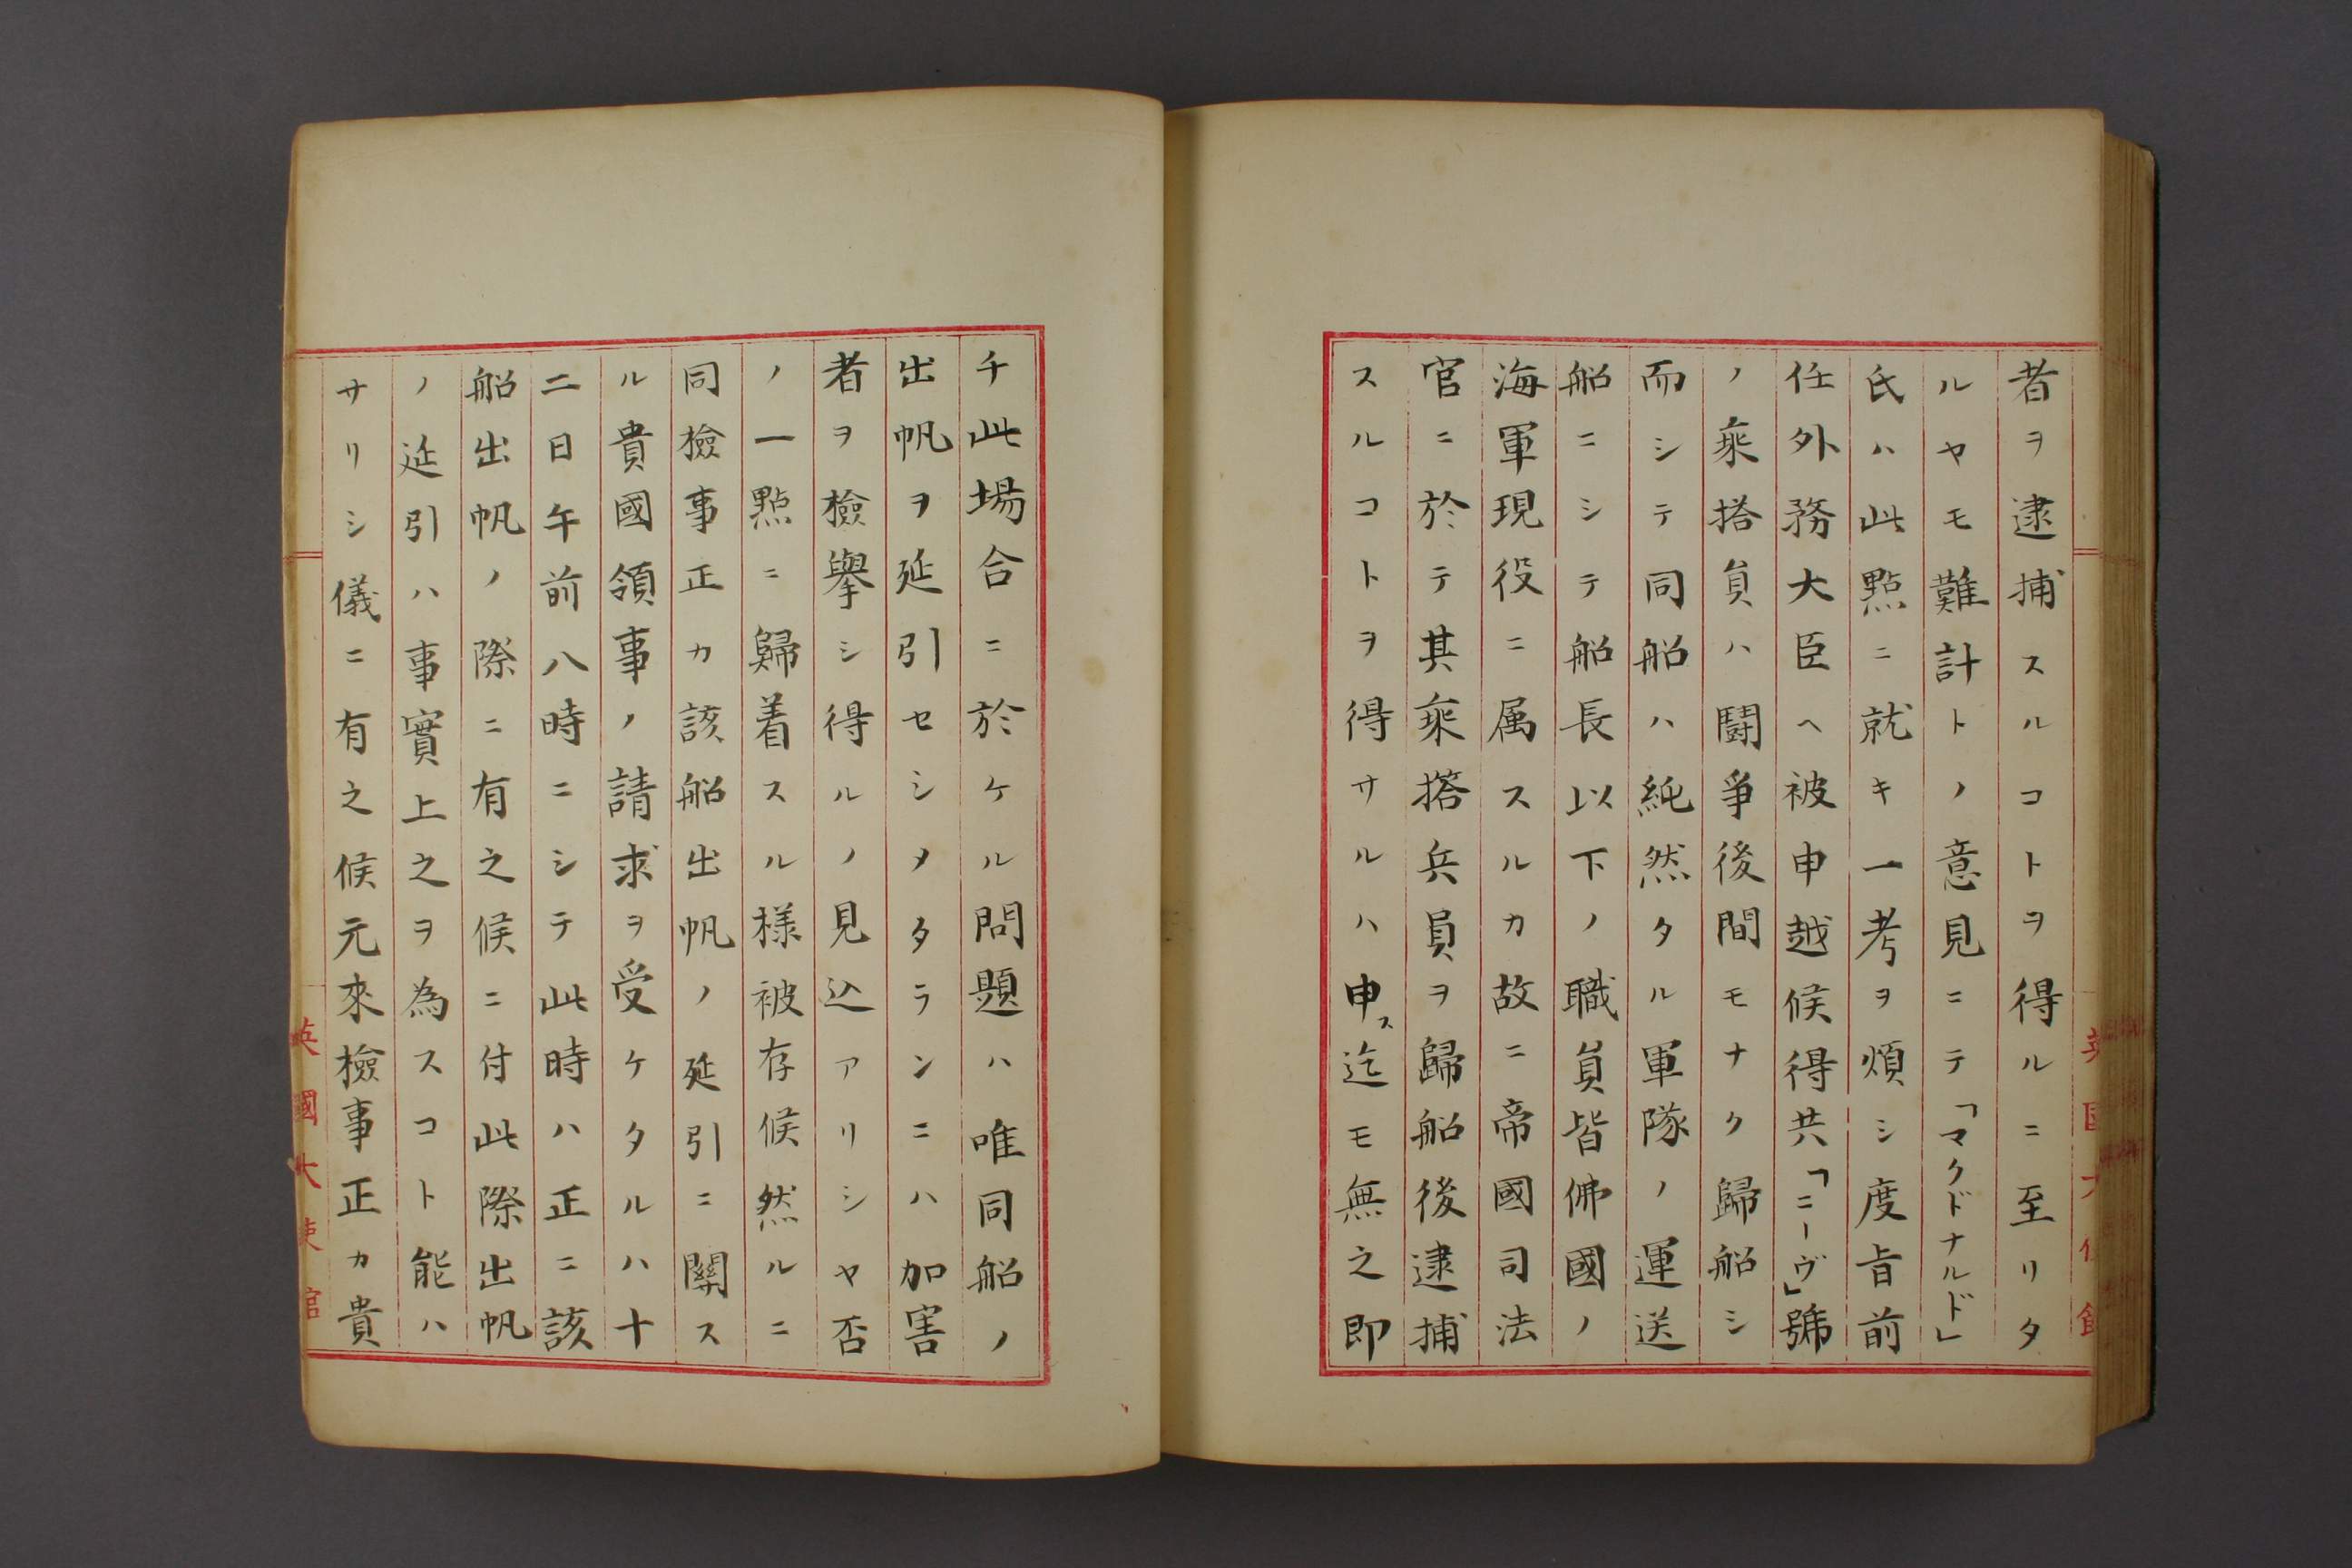 者ヲ逮捕スルコトヲ得ルニ至リタ
ルヤモ難計トノ意見ニテ「マクドナルド」
氏ハ此點ニ就キ一考ヲ煩シ度旨前
任外務大臣ヘ被申越候得共「ニーヴ」號
ノ乘搭員ハ鬪爭後間モナク歸船シ
而シテ同船ハ純然タル軍隊ノ運送
船ニシテ船長以下ノ職員皆佛國ノ
海軍現役ニ属スルカ故ニ帝國司法
官ニ於テ其乘搭兵員ヲ歸船後逮捕
スルコトヲ得サルハ申ス迄モ無之即
チ此場合ニ於ケル問題ハ唯同船ノ
出帆ヲ延引セシメタランニハ加害
者ヲ檢擧シ得ルノ見込アリシヤ否
ノ一點ニ歸着スル様被存候然ルニ
同檢事正カ該船出帆ノ延引ニ關ス
ル貴國領事ノ請求ヲ受ケタルハ十
二日午前八時ニシテ此時ハ正ニ該
船出帆ノ際ニ有之候ニ付此際出帆
ノ延引ハ事實上之ヲ為スコト能ハ
サリシ儀ニ有之候元來檢事正カ貴
英國大使館